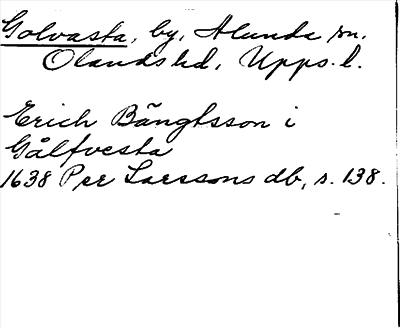 Golvasta, by, Alunda sn.
Olands hd, Upps. l.
Erich Bängtsson i
Gålfvesta
1638 Per Larssons db, s. 138.